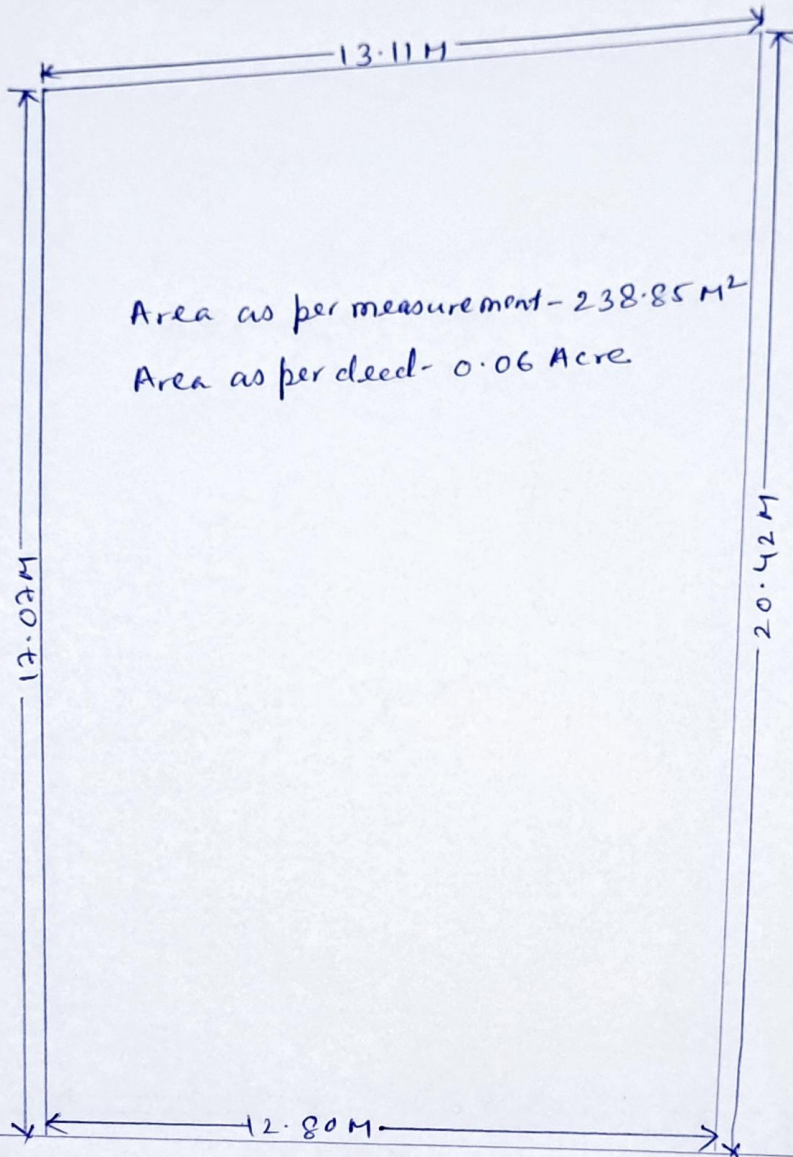 13.11 M
Area as per measurement - 238.85 M²
Area as per deed - 0.06 Acre
17.07 M
20.42 M
12.80 M